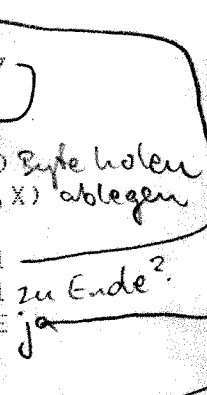 ) Byte holen
,X) ablegen
zu Ende?
ja